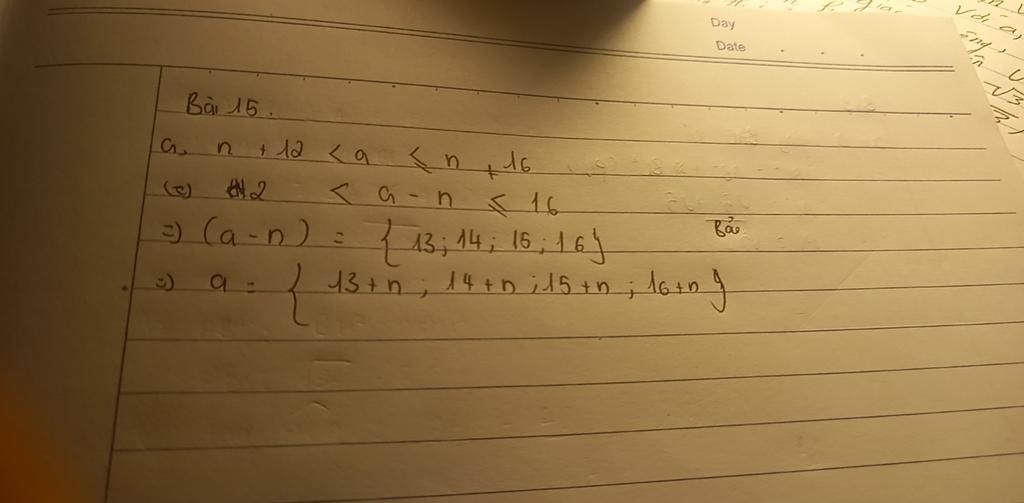 Day
Date
Bài 15.
a, n + 12 < a ⩽ n + 16
(=) 12 < a - n ⩽ 16
=) (a - n) = { 13 ; 14 ; 15 ; 16 }
Bảo
=) a = { 13 + n ; 14 + n ; 15 + n ; 16 + n }